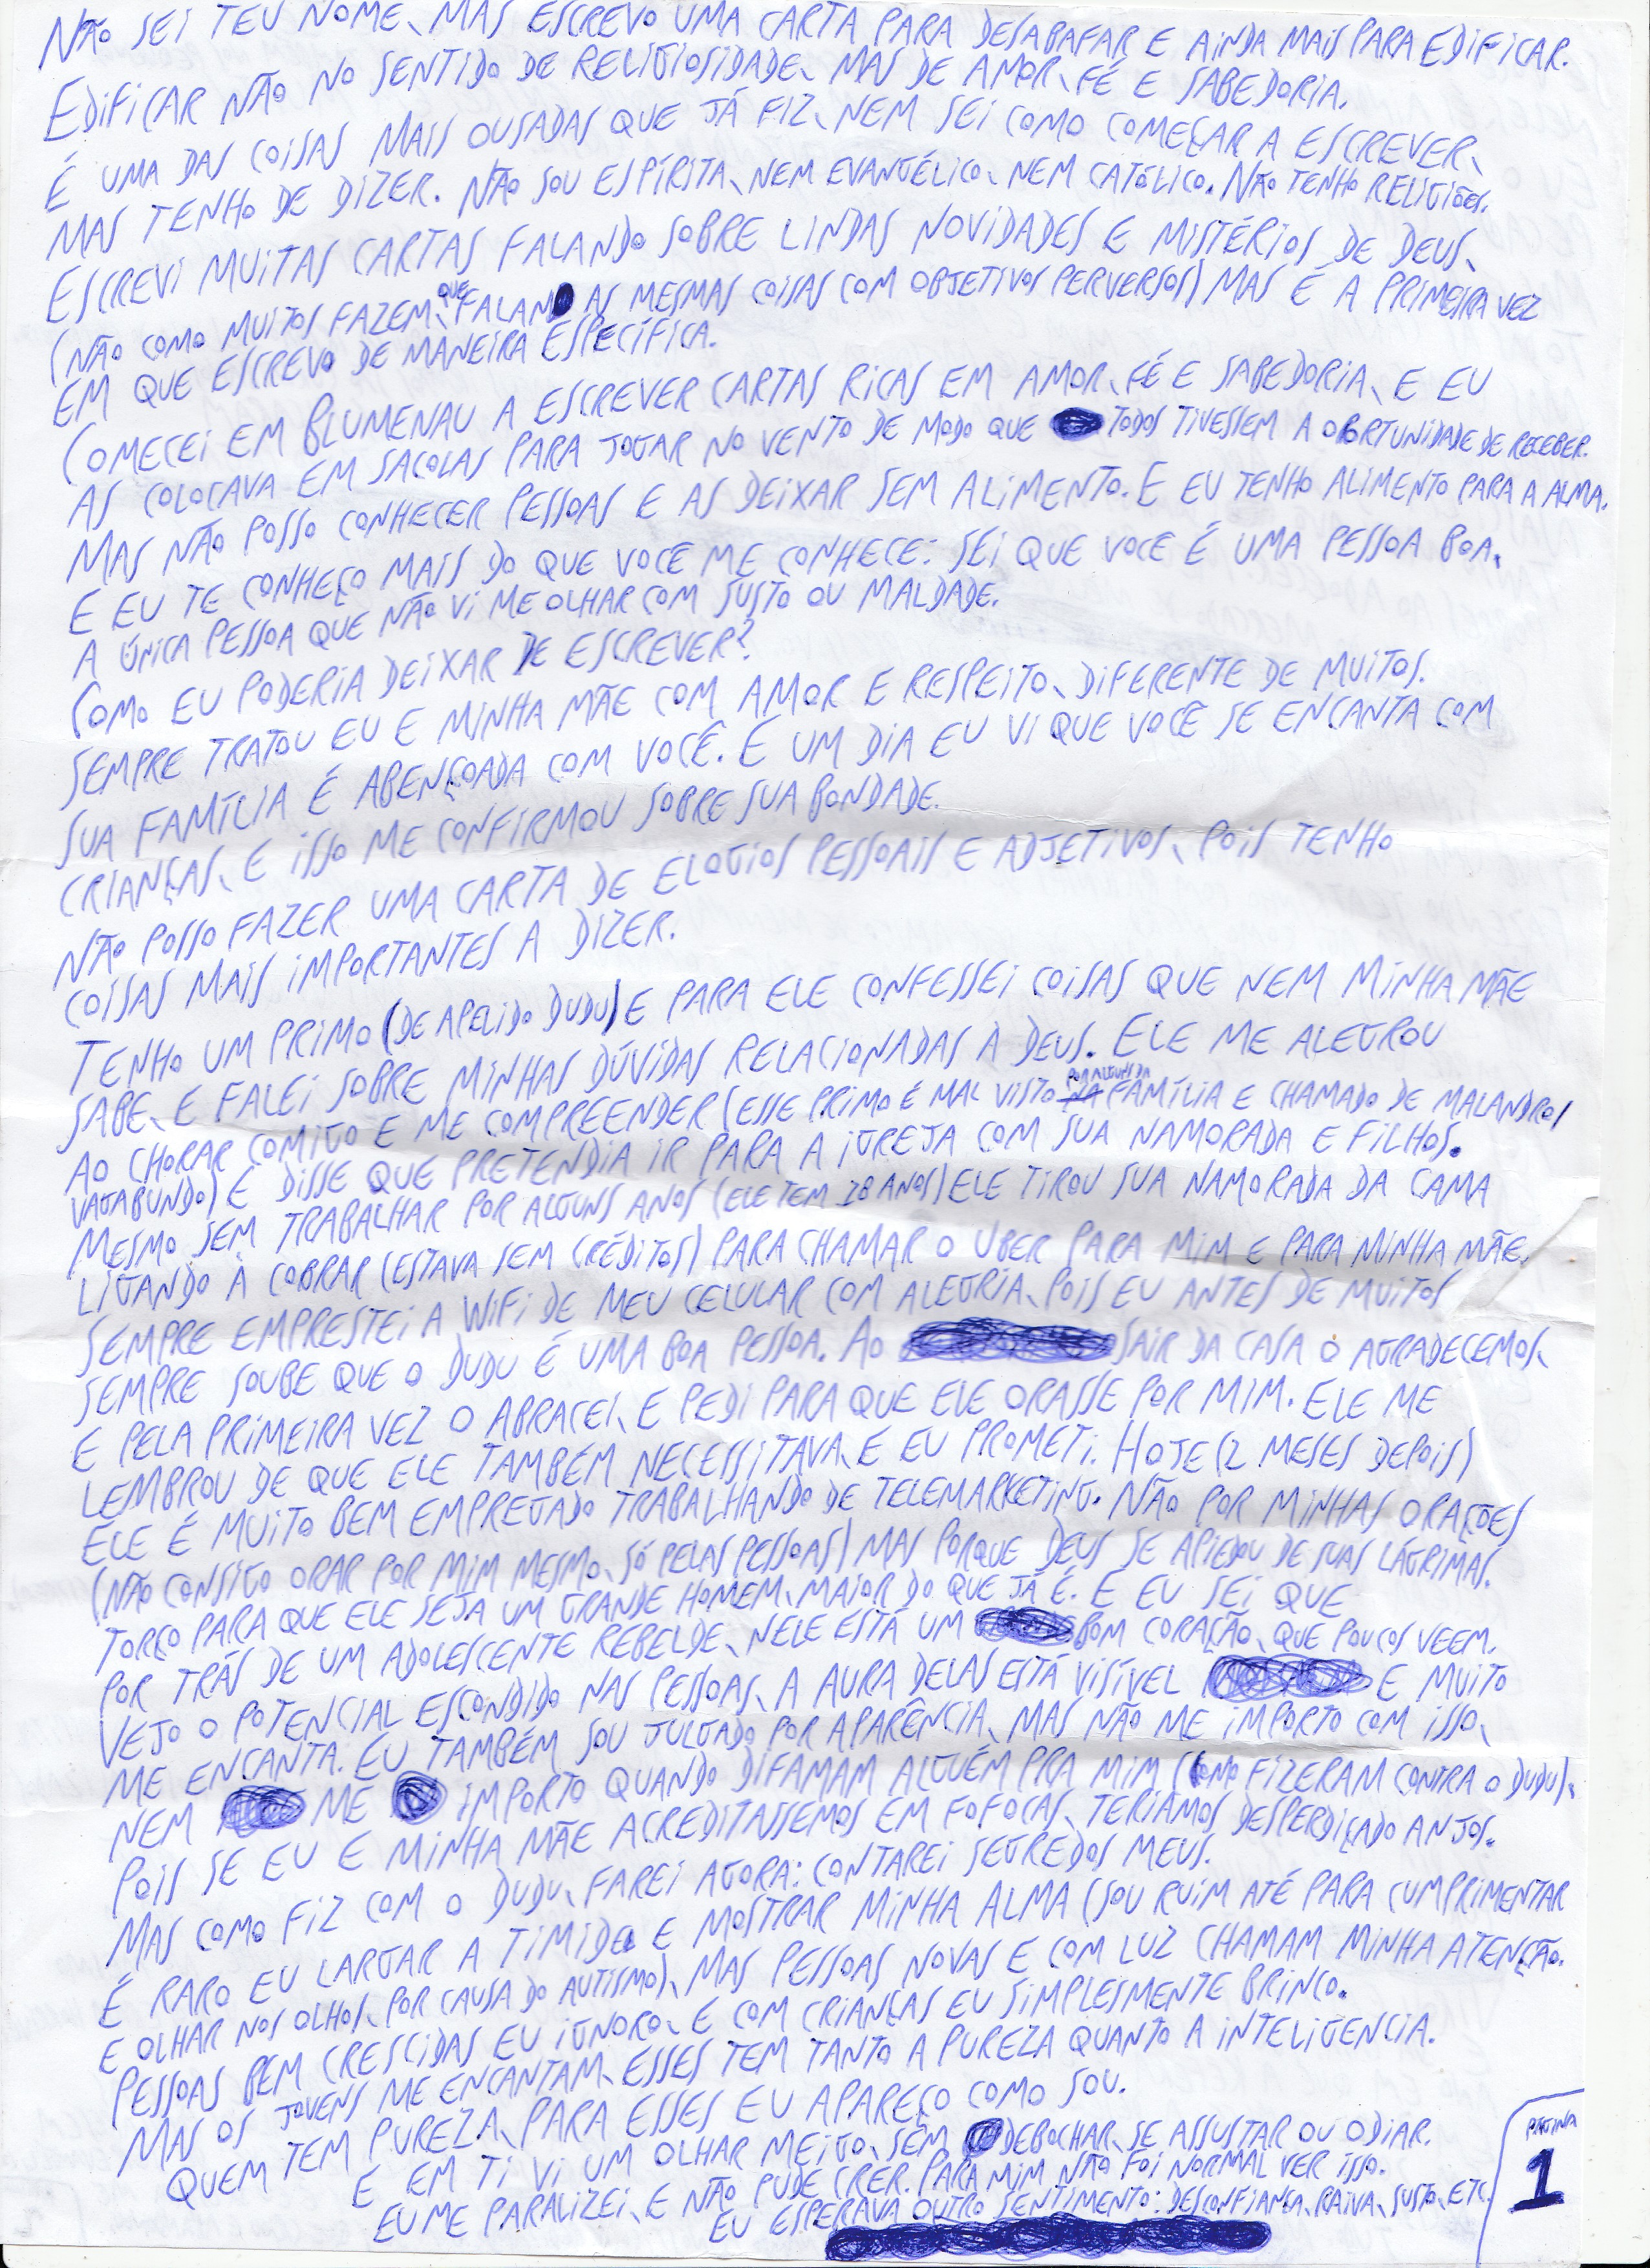 NÃO SEI TEU NOME, MAS ESCREVO UMA CARTA PARA DESABAFAR E AINDA MAIS PARA EDIFICAR.
EDIFICAR NÃO NO SENTIDO DE RELIGIOSIDADE, MAS DE AMOR, FÉ E SABEDORIA.
É UMA DAS COISAS MAIS OUSADAS QUE JÁ FIZ, NEM SEI COMO COMEÇAR A ESCREVER,
MAS TENHO DE DIZER. NÃO SOU ESPÍRITA, NEM EVANGÉLICO, NEM CATÓLICO. NÃO TENHO RELIGIÕES.
ESCREVI MUITAS CARTAS FALANDO SOBRE LINDAS NOVIDADES E MISTÉRIOS DE DEUS,
(NÃO COMO MUITOS FAZEM, QUE FALAM AS MESMAS COISAS COM OBJETIVOS PERVERSOS) MAS É A PRIMEIRA VEZ
EM QUE ESCREVO DE MANEIRA ESPECÍFICA.
COMECEI EM BLUMENAU A ESCREVER CARTAS RICAS EM AMOR, FÉ E SABEDORIA, E EU
AS COLOCAVA EM SACOLAS PARA JOGAR NO VENTO DE MODO QUE TODOS TIVESSEM A OPORTUNIDADE DE RECEBER.
MAS NÃO POSSO CONHECER PESSOAS E AS DEIXAR SEM ALIMENTO. E EU TENHO ALIMENTO PARA A ALMA.
E EU TE CONHEÇO MAIS DO QUE VOCÊ ME CONHECE: SEI QUE VOCÊ É UMA PESSOA BOA,
A ÚNICA PESSOA QUE NÃO VI ME OLHAR COM SUSTO OU MALDADE.
COMO EU PODERIA DEIXAR DE ESCREVER?
SEMPRE TRATOU EU E MINHA MÃE COM AMOR E RESPEITO, DIFERENTE DE MUITOS.
SUA FAMÍLIA É ABENÇOADA COM VOCÊ. E UM DIA EU VI QUE VOCÊ SE ENCANTA COM
CRIANÇAS, E ISSO ME CONFIRMOU SOBRE SUA BONDADE.
NÃO POSSO FAZER UMA CARTA DE ELOGIOS PESSOAIS E ADJETIVOS, POIS TENHO
COISAS MAIS IMPORTANTES A DIZER.
TENHO UM PRIMO (DE APELIDO DUDU) E PARA ELE CONFESSEI COISAS QUE NEM MINHA MÃE
SABE, E FALEI SOBRE MINHAS DÚVIDAS RELACIONADAS À DEUS. ELE ME ALEGROU
AO CHORAR COMIGO E ME COMPREENDER (ESSE PRIMO É MAL VISTO POR ALGUNS DA FAMÍLIA E CHAMADO DE MALANDRO/
VAGABUNDO) E DISSE QUE PRETENDIA IR PARA A IGREJA COM SUA NAMORADA E FILHOS.
MESMO SEM TRABALHAR POR ALGUNS ANOS (ELE TEM 18 ANOS) ELE TIROU SUA NAMORADA DA CAMA
LIGANDO À COBRAR (ESTAVA SEM CRÉDITOS) PARA CHAMAR O UBER PARA MIM E PARA MINHA MÃE.
SEMPRE EMPRESTEI A WIFI DE MEU CELULAR COM ALEGRIA, POIS EU ANTES DE MUITOS
SEMPRE SOUBE QUE O DUDU É UMA BOA PESSOA. AO SAIR DA CASA O AGRADECEMOS,
E PELA PRIMEIRA VEZ O ABRACEI, E PEDI PARA QUE ELE ORASSE POR MIM. ELE ME
LEMBROU DE QUE ELE TAMBÉM NECESSITAVA, E EU PROMETI. HOJE (2 MESES DEPOIS)
ELE É MUITO BEM EMPREGADO TRABALHANDO DE TELEMARKETING. NÃO POR MINHAS ORAÇÕES
(NÃO CONSIGO ORAR POR MIM MESMO, SÓ PELAS PESSOAS) MAS PORQUE DEUS SE APIEDOU DE SUAS LÁGRIMAS.
TORÇO PARA QUE ELE SEJA UM GRANDE HOMEM, MAIOR DO QUE JÁ É. E EU SEI QUE
POR TRÁS DE UM ADOLESCENTE REBELDE, NELE ESTÁ UM BOM CORAÇÃO, QUE POUCOS VEEM.
VEJO O POTENCIAL ESCONDIDO NAS PESSOAS, A AURA DELAS ESTÁ VISÍVEL E MUITO
ME ENCANTA. EU TAMBÉM SOU JULGADO POR APARÊNCIA, MAS NÃO ME IMPORTO COM ISSO,
NEM ME IMPORTO QUANDO DIFAMAM ALGUÉM PRA MIM (COMO FIZERAM CONTRA O DUDU),
POIS SE EU E MINHA MÃE ACREDITASSEMOS EM FOFOCAS, TERIAMOS DESPERDIÇADO ANJOS.
MAS COMO FIZ COM O DUDU, FAREI AGORA: CONTAREI SEGREDOS MEUS.
É RARO EU LARGAR A TIMIDEZ E MOSTRAR MINHA ALMA (SOU RUIM ATÉ PARA CUMPRIMENTAR
E OLHAR NOS OLHOS, POR CAUSA DO AUTISMO), MAS PESSOAS NOVAS E COM LUZ CHAMAM MINHA ATENÇÃO.
PESSOAS BEM CRESCIDAS EU IGNORO, E COM CRIANÇAS EU SIMPLESMENTE BRINCO.
MAS OS JOVENS ME ENCANTAM, ESSES TEM TANTO A PUREZA QUANTO A INTELIGENCIA.
QUEM TEM PUREZA, PARA ESSES EU APAREÇO COMO SOU.
E EM TI VI UM OLHAR MEIGO, SEM DEBOCHAR, SE ASSUSTAR OU ODIAR.
EU ME PARALIZEI, E NÃO PUDE CRER. PARA MIM NÃO FOI NORMAL VER ISSO.
EU ESPERAVA OUTRO SENTIMENTO: DESCONFIANÇA, RAIVA, SUSTO, ETC.
PÁGINA
1